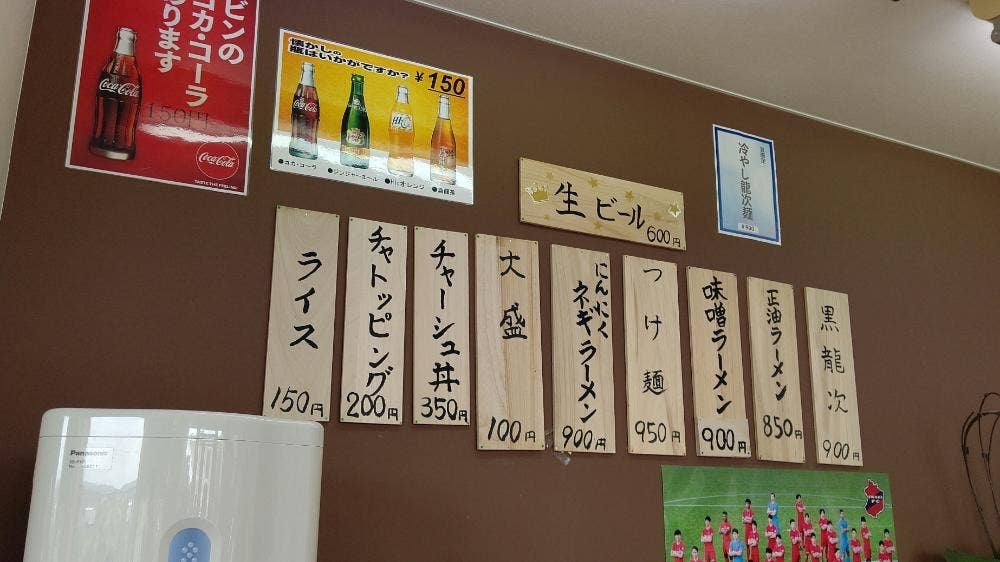 ビンの
コカ・コーラ
あります
150円
Coca-Cola
Coca-Cola
TASTE THE FEELING
懐かしの
瓶はいかがですか? ¥150
Coca-Cola
●コカ・コーラ
●ジンジャーエール
●Hi-Cオレンジ
生ビール
600円
冷やし龍次麺
黒龍次
900円
正油ラーメン
850円
味噌ラーメン
900円
つけ麺
950円
にんにく
ネギラーメン
900円
大盛
100円
チャーシュ丼
350円
チャトッピング
200円
ライス
150円
Panasonic